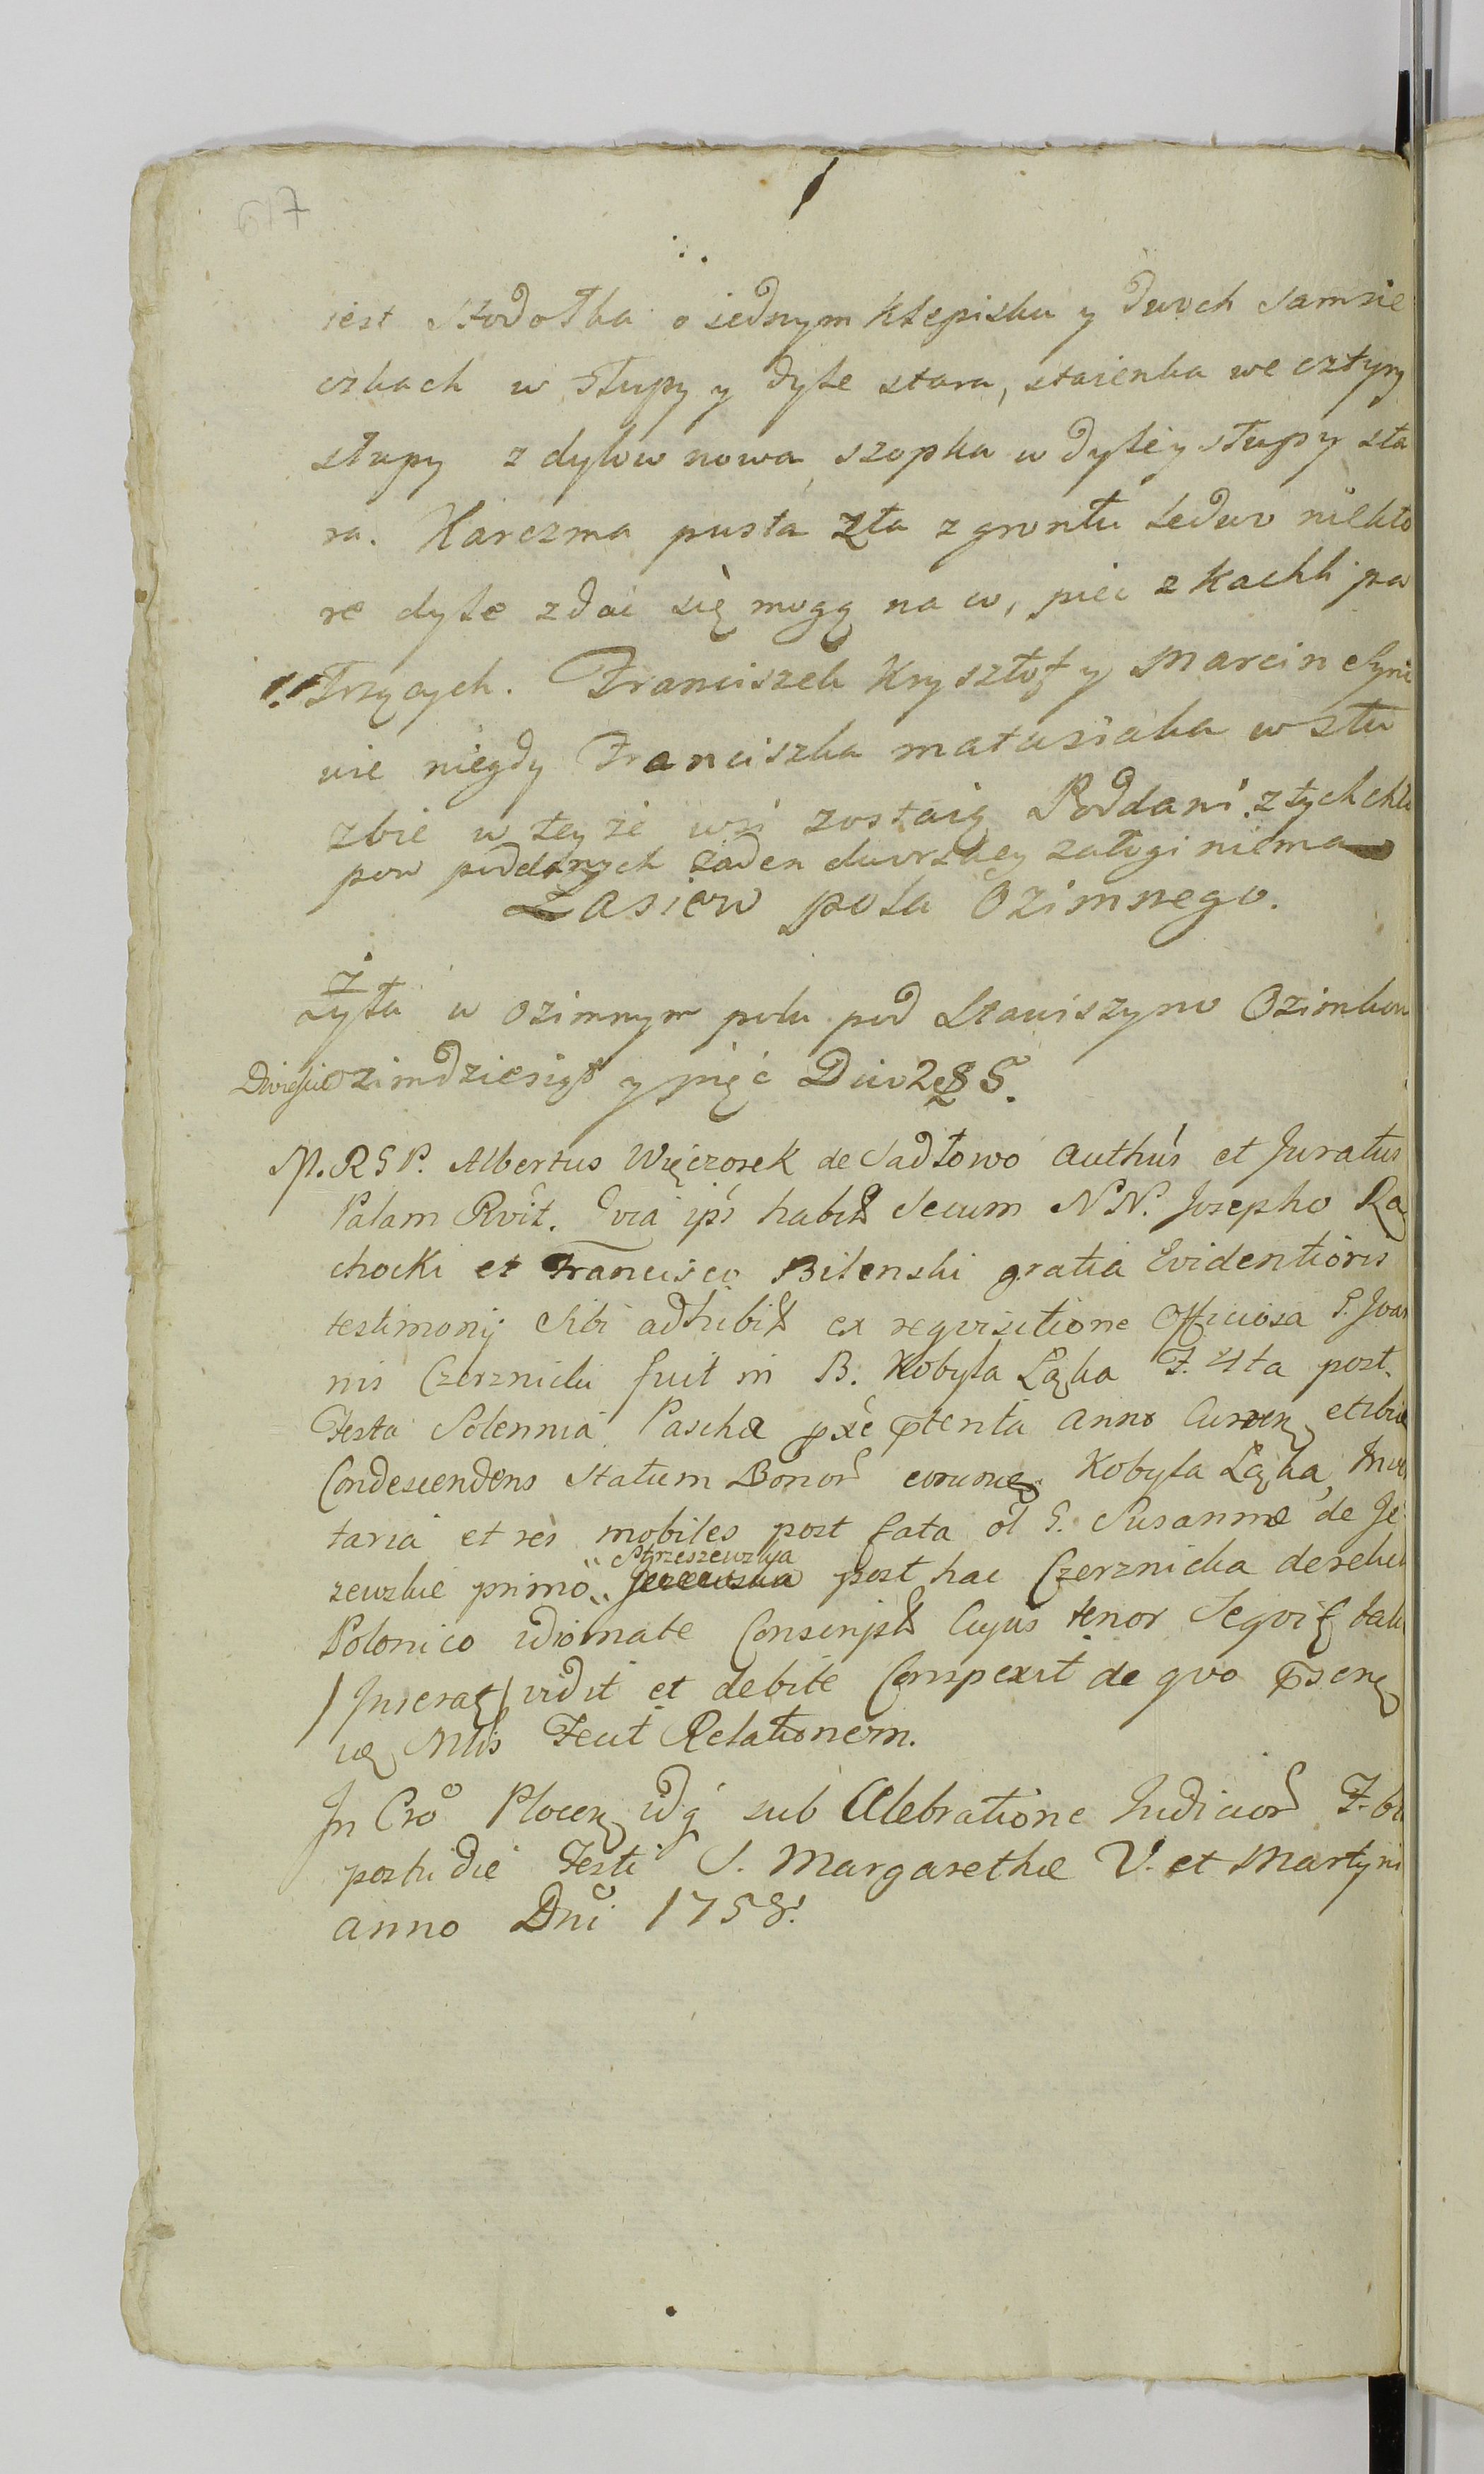 617
iest Stodołka o iednym klepisku y dwoch samsie
czkach w słupy y dyle stara, staienka we cztyry
słupy z dylow nowa, szopka w dyle y słupy sta
ra. Karczma pusta zła z gruntu ledwo niekto
re dyle zdać się mogą na co, piec z kachli pa
trzących. Franciszek Krysztof y Marcin Syno
wie niegdy Franciszka matusiaka w słu
zbie w teyże wsi zostaią Poddani. z tych chło
pow poddanych żaden dworskiey załogi niema
Zasiew pola Ozimnego.
Zyta w ozimnym polu pod Stawiszyno Ozimkow
Dwiescie ozimdziesiąt y pięć Dico 285.
M. R G P. Albertus Więczorek de Sadłowo Authús et Juratus
Palam Rvit. Qvia ipś habis Secum NN. Josepho Ra
chocki et Francisco Bilenski gratia Evidentioris
testimonij Sibi adhibis ex reqvisitione Officiosa G. Joan
nis Czerznicki fuit in B. Kobyla Łąka F. 4ta post
Festa Solennia Paschae pxe ptenta anno Curren et ibi
Condescendens Statum Bonor eorume Kobyla Łąka, Inven
taria et res mobiles post fata ol G. Susannae de Je
zewskie primo Strzeszewska post hac Czerznicka derelict
Polonico idiomate Conscript Cujus tenor Seqvit talis
/Inserat/ vidit et debite Conspexit de qvo psen
Mlis Fecit Relationem.
In Cro Plocen idq sub Celebratione Judicior F. 6ta
postridie Festi S. Margarethae V. et Martyris
anno Dni 1758.